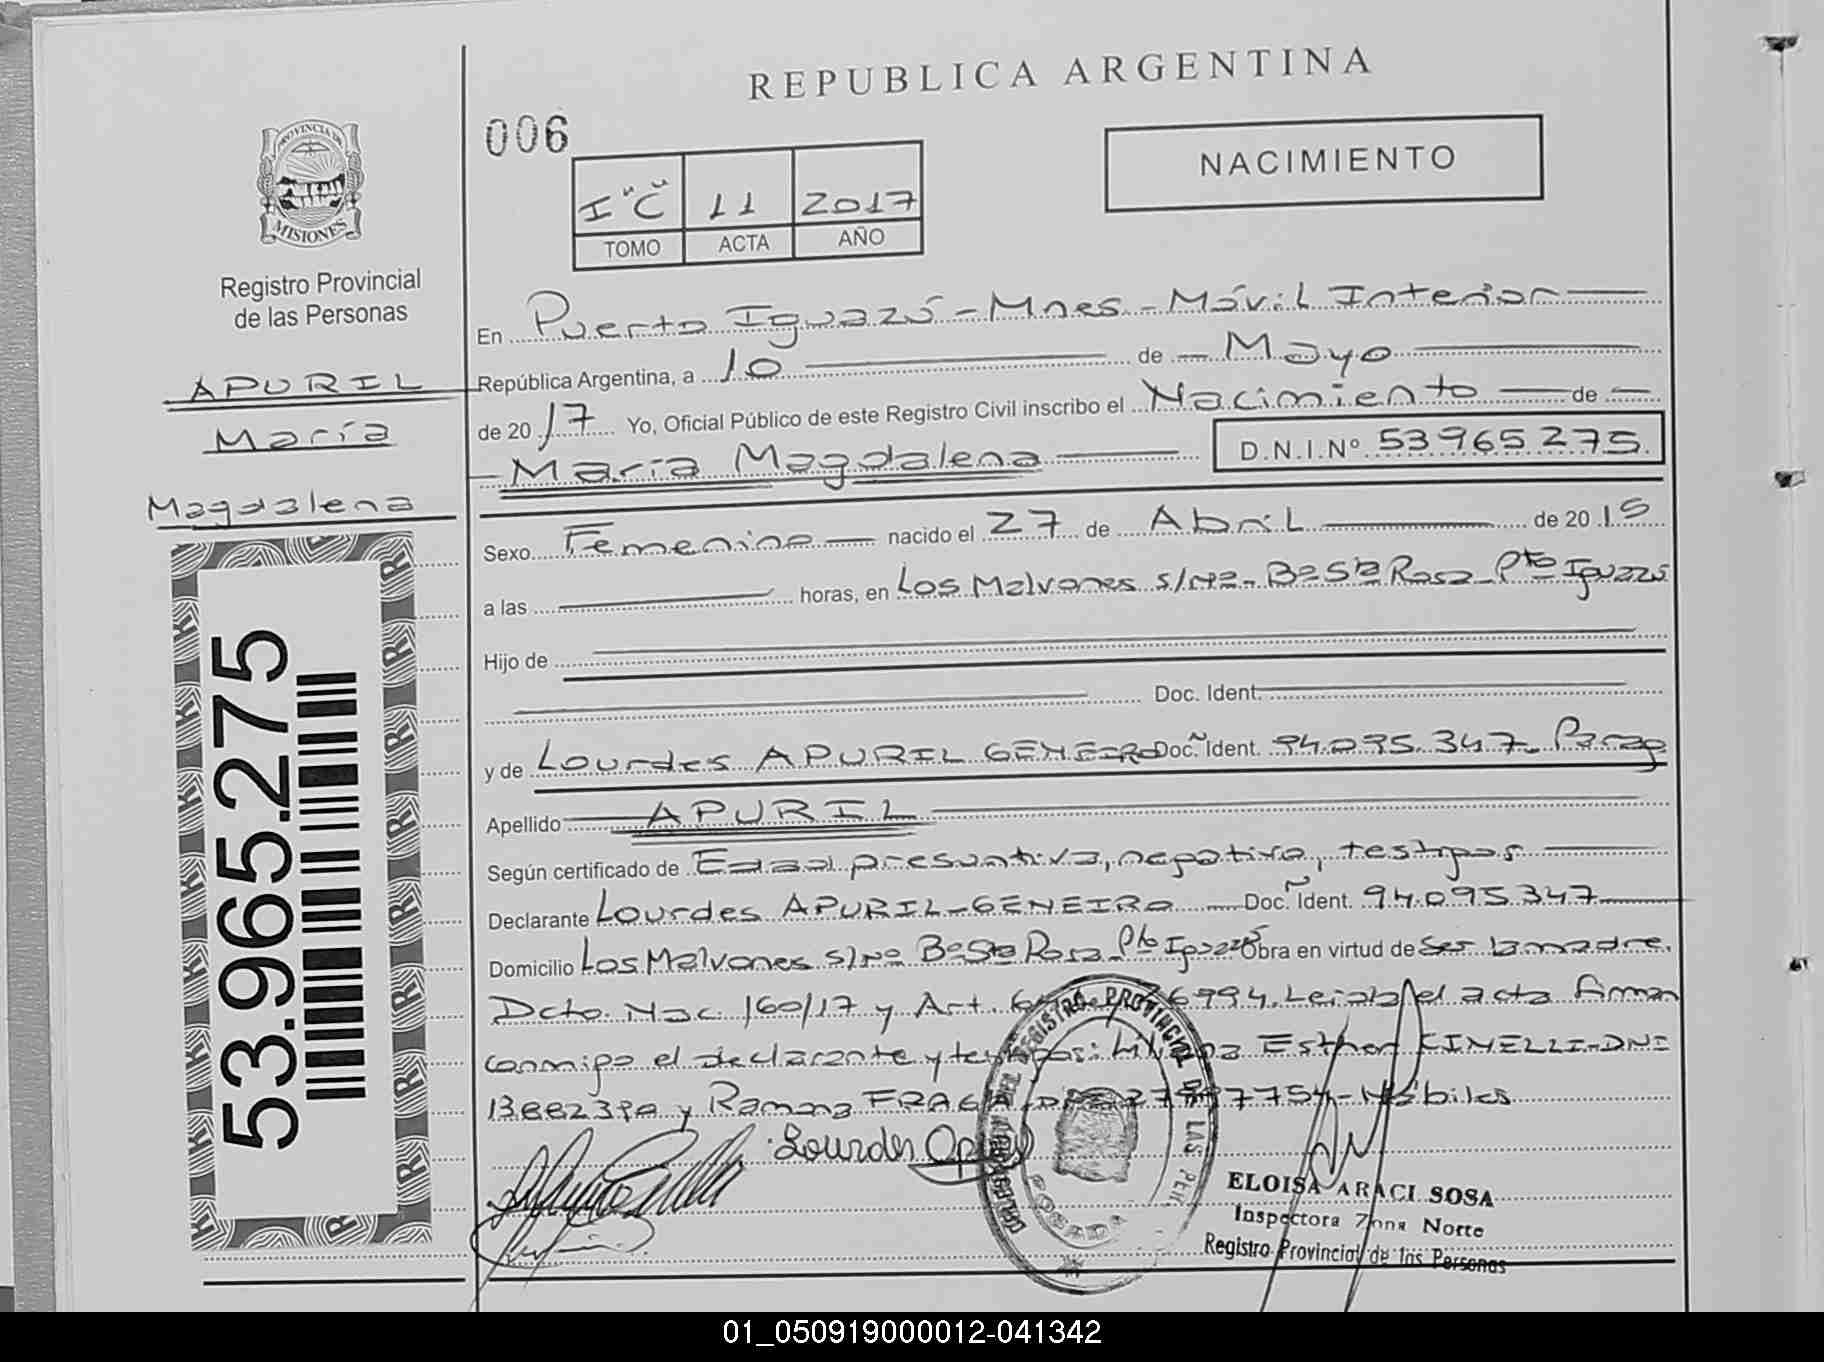 REPUBLICA ARGENTINA
006
NACIMIENTO
I "C" 11 2017
TOMO ACTA AÑO
PROVINCIA DE MISIONES
Registro Provincial
de las Personas
APURIL
María
Magdalena
53.965.275
En Puerto Iguazú - Mnes - Móvil Interior
República Argentina, a 10 de Mayo
de 2017 Yo, Oficial Público de este Registro Civil inscribo el Nacimiento de
María Magdalena D.N.I.Nº 53965275
Sexo Femenino nacido el 27 de Abril de 2015
a las horas, en Los Malvones s/nº - Bº Sta Rosa - Pto Iguazú
Hijo de
Doc. Ident.
y de Lourdes APURIL GENEIRO Doc. Ident. 94.095.347. Parag
Apellido APURIL
Según certificado de Edad presuntiva, negativa, testigos
Declarante Lourdes APURIL-GENEIRO Doc. Ident. 94.095.347
Domicilio Los Malvones s/nº Bº Sta Rosa Pto Iguazú Obra en virtud de Ser la madre.
Dcto. Nac. 160/17 y Art. 26994. Leída el acta firman
conmigo el declarante y testigos: Liliana Esther CINELLI-DNI
13882390 y Ramona FRAGA Hábiles
Lourdes
DEL REGISTRO PROVINCIAL DE LAS PER
POSADAS
ELOISA ARACI SOSA
Inspectora Zona Norte
Registro Provincial de las Personas
01_050919000012-041342